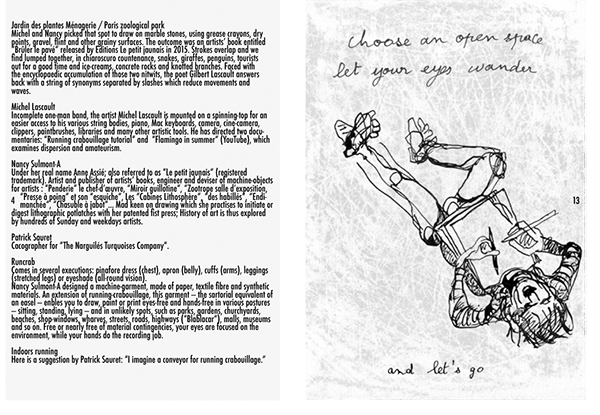 Jardin des plantes Ménagerie / Paris zoological park
Michel and Nancy picked that spot to draw on marble stones, using grease crayons, dry
points, gravel, flint and other grainy surfaces. The outcome was an artists' book entitled
"Brûler le pavé" released by Editions Le petit jaunais in 2015. Strokes overlap and we
find lumped together, in chiaroscuro countenance, snakes, giraffes, penguins, tourists
out for a good time and ice-creams, concrete rocks and knotted branches. Faced with
the encyclopaedic accumulation of those two nitwits, the poet Gilbert Lascault answers
back with a string of synonyms separated by slashes which reduce movements and
waves.
Michel Lascault
Incomplete one-man band, the artist Michel Lascault is mounted on a spinning-top for an
easier access to his various string bodies, piano, Mac keyboards, camera, cine-camera,
clippers, paintbrushes, libraries and many other artistic tools. He has directed two docu-
mentaries: "Running crabouillage tutorial" and "Flamingo in summer" (YouTube), which
examines dispersion and amateurism.
Nancy Sulmont-A
Under her real name Anne Assié; also referred to as "Le petit jaunais" (registered
trademark). Artist and publisher of artists' books, engineer and deviser of machine-objects
for artists : "Penderie" le chef-d'œuvre, "Miroir guillotine", "Zootrope salle d'exposition,
"Presse à poing" et son "esquiche", Les "Cabines Lithosphère", "des habillés", "Endi-
4 manchée", "Chasuble à jabot"... Mad keen on drawing which she practises to initiate or
digest lithographic potlatches with her patented fist press; History of art is thus explored
by hundreds of Sunday and weekdays artists.
Patrick Sauret
Cocographer for "The Narguilés Turquoises Company".
Runcrab
Comes in several executions: pinafore dress (chest), apron (belly), cuffs (arms), leggings
(stretched legs) or eyeshade (all-round vision).
Nancy Sulmont-A designed a machine-garment, made of paper, textile fibre and synthetic
materials. An extension of running-crabouillage, this garment – the sartorial equivalent of
an easel – enbles you to draw, paint or print eyes-free and hands-free in various postures
– sitting, standing, lying – and in unlikely spots, such as parks, gardens, churchyards,
beaches, shop-windows, wharves, streets, roads, highways ("Blablacar"), malls, museums
and so on. Free or nearly free of material contingencies, your eyes are focused on the
environment, while your hands do the recording job.
Indoors running
Here is a suggestion by Patrick Sauret: "I imagine a conveyor for running crabouillage."
choose an open space
let your eyes wander
13
and let's go